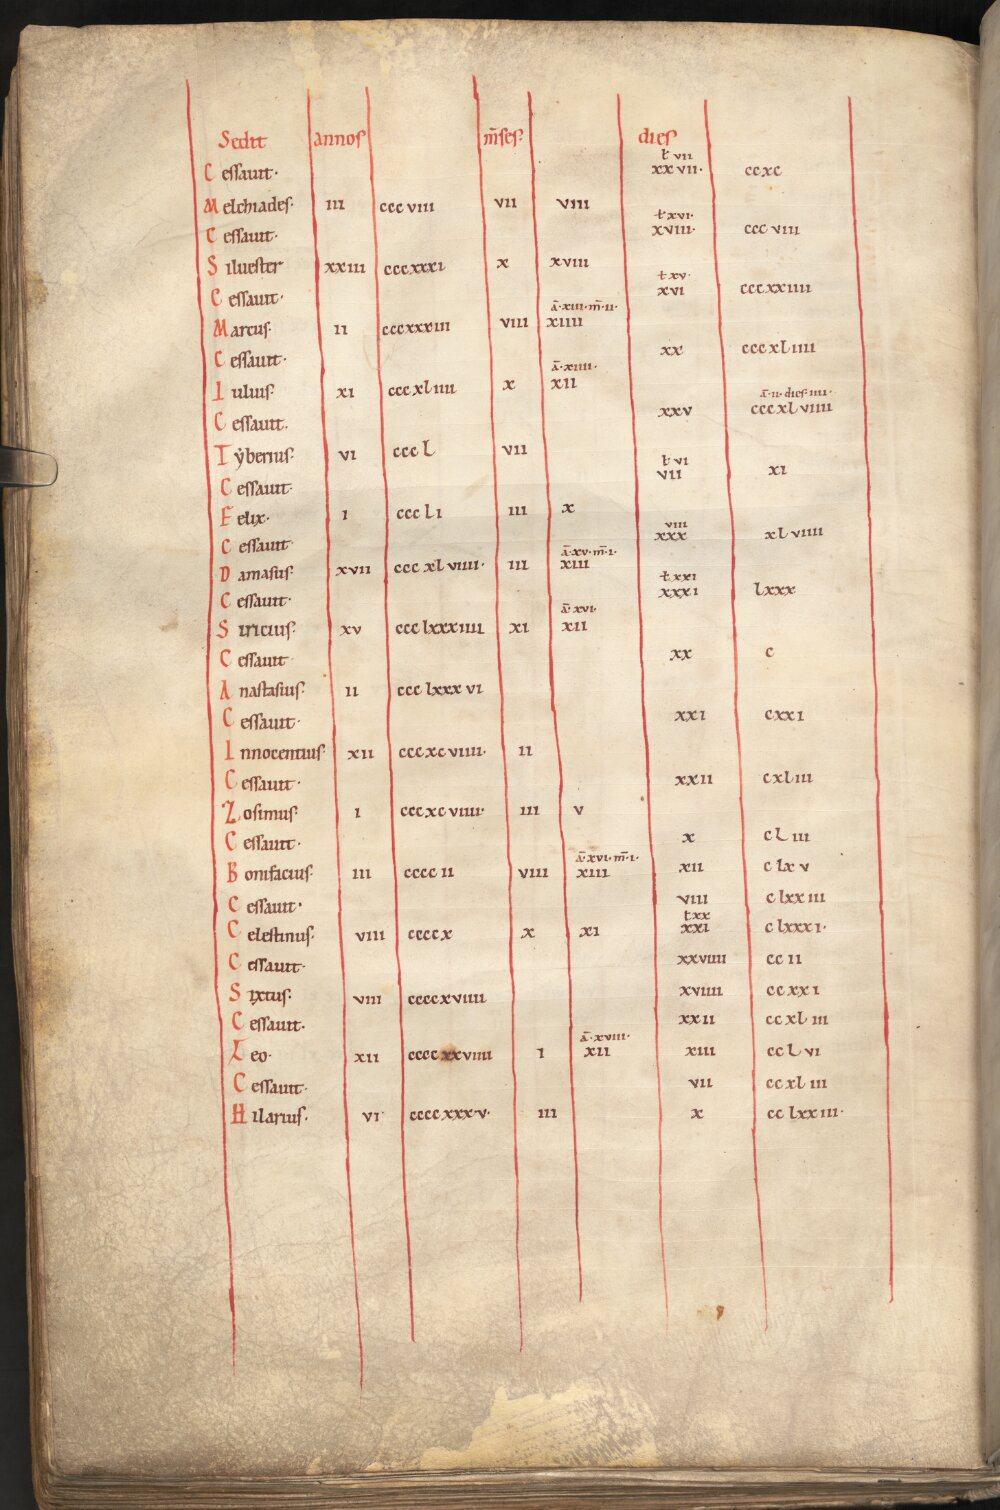 Sedit annos m̄ses· dies
Cessauit· ł vii xxvii· ccxc
Melchiades· iii cccviii vii viii
Cessauit· ł xvi· xviii· cccviii
Siluester xxiii cccxxxi x xviii
Cessauit· ł xv· xvi cccxxiiii
Marcus· ii cccxxxiii viii ā·xiii·m̄·ii· xiiii
Cessauit· xx cccxliiii
Iulius· xi cccxliiii x ā·xiiii· xii
Cessauit· xxv ā·ii·dies·iiii· cccxlviiii
Tẏberius· vi cccl vii
Cessauit· ł vi vii xi
Felix· i cccli iii x
Cessauit viii xxx xlviiii
Damasus· xvii cccxlviiii· iii ā·xv·m̄·i· xiii
Cessauit· ł xxi xxxi lxxx
Siricius· xv ccclxxxiiii xi ā·xvi· xii
Cessauit xx c
Anastasius· ii ccclxxxvi
Cessauit· xxi cxxi
Innocentius· xii cccxcviiii· ii
Cessauit· xxii cxliii
Zosimus· i cccxcviiii· iii v
Cessauit· x cliii
Bonifacius· iii ccccii viii ā·xvi·m̄·i· xiii xii clxv
Cessauit· viii clxxiii
Celestinus· viii ccccx x xi ł xx xxi clxxxi·
Cessauit· xxviiii ccii
Sixtus· viii ccccxviiii xviiii ccxxi
Cessauit· xxii ccxliii
Leo· xii ccccxxviiii i ā·xviii· xii xiii cclvi
Cessauit· vii ccxliii
Hilarius· vi ccccxxxv· iii x cclxxiii·